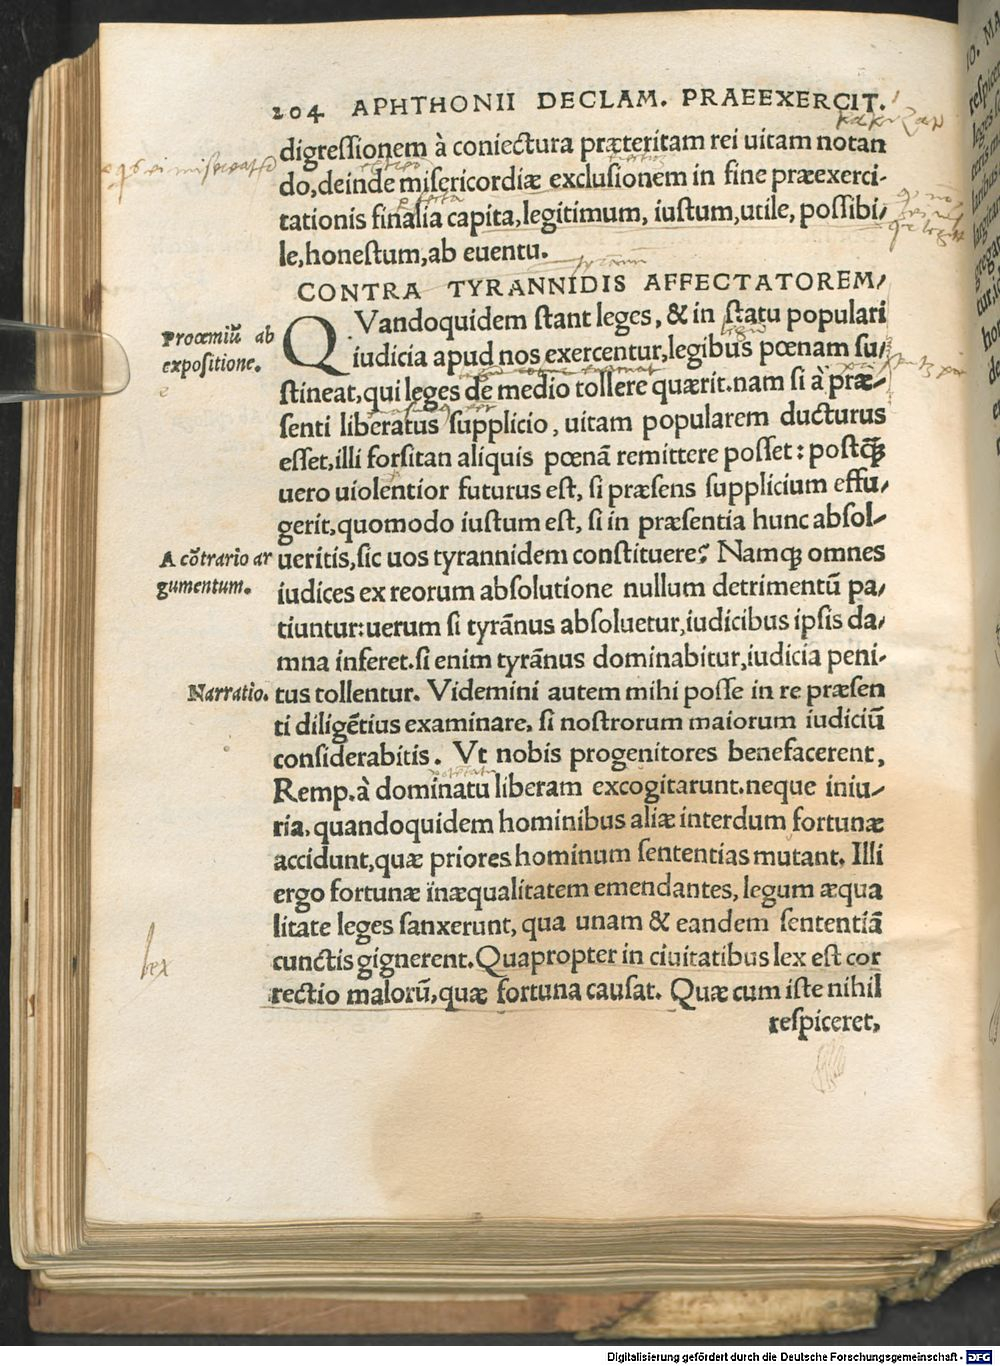 204 APHTHONII DECLAM. PRAEEXERCIT.
digressionem à coniectura præteritam rei uitam notan
do, deinde misericordiæ exclusionem in fine præexerci-
tationis finalia capita, legitimum, iustum, utile, possibi/
le, honestum, ab euentu.
CONTRA TYRANNIDIS AFFECTATOREM/
Prooemiũ ab
expositione.
QVandoquidem stant leges, & in statu populari
iudicia apud nos exercentur, legibus pœnam su/
stineat, qui leges de medio tollere quærit. nam si à præ/
senti liberatus supplicio, uitam popularem ducturus
esset, illi forsitan aliquis pœnã remittere posset: postq̃
uero uiolentior futurus est, si præsens supplicium effu/
gerit, quomodo iustum est, si in præsentia hunc absol/
A cõtrario ar
gumentum.
ueritis, sic uos tyrannidem constituere? Namq; omnes
iudices ex reorum absolutione nullum detrimentũ pa/
tiuntur: uerum si tyrãnus absoluetur, iudicibus ipsis da/
mna inferet. si enim tyrãnus dominabitur, iudicia peni-
Narratio.
tus tollentur. Videmini autem mihi posse in re præsen
ti diligẽtius examinare, si nostrorum maiorum iudiciũ
considerabitis. Vt nobis progenitores benefacerent,
Remp. à dominatu liberam excogitarunt. neque iniu/
ria, quandoquidem hominibus aliæ interdum fortunæ
accidunt, quæ priores hominum sententias mutant. Illi
ergo fortunæ inæqualitatem emendantes, legum æqua
litate leges sanxerunt, qua unam & eandem sententiã
lex
cunctis gignerent. Quapropter in ciuitatibus lex est cor
rectio malorũ, quæ fortuna causat. Quæ cum iste nihil
respiceret,
Digitalisierung gefördert durch die Deutsche Forschungsgemeinschaft - DFG